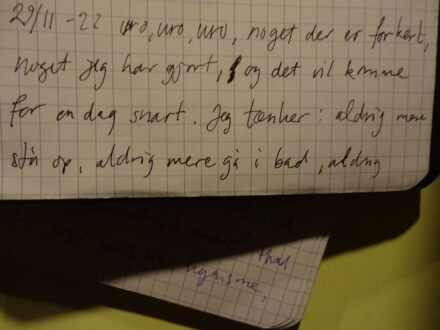 29/11 -22 uro, uro, uro, noget der er forkert,
noget jeg har gjort, og det vil komme
for en dag snart. Jeg tænker: aldrig mere
stå op, aldrig mere gå i bad, aldrig